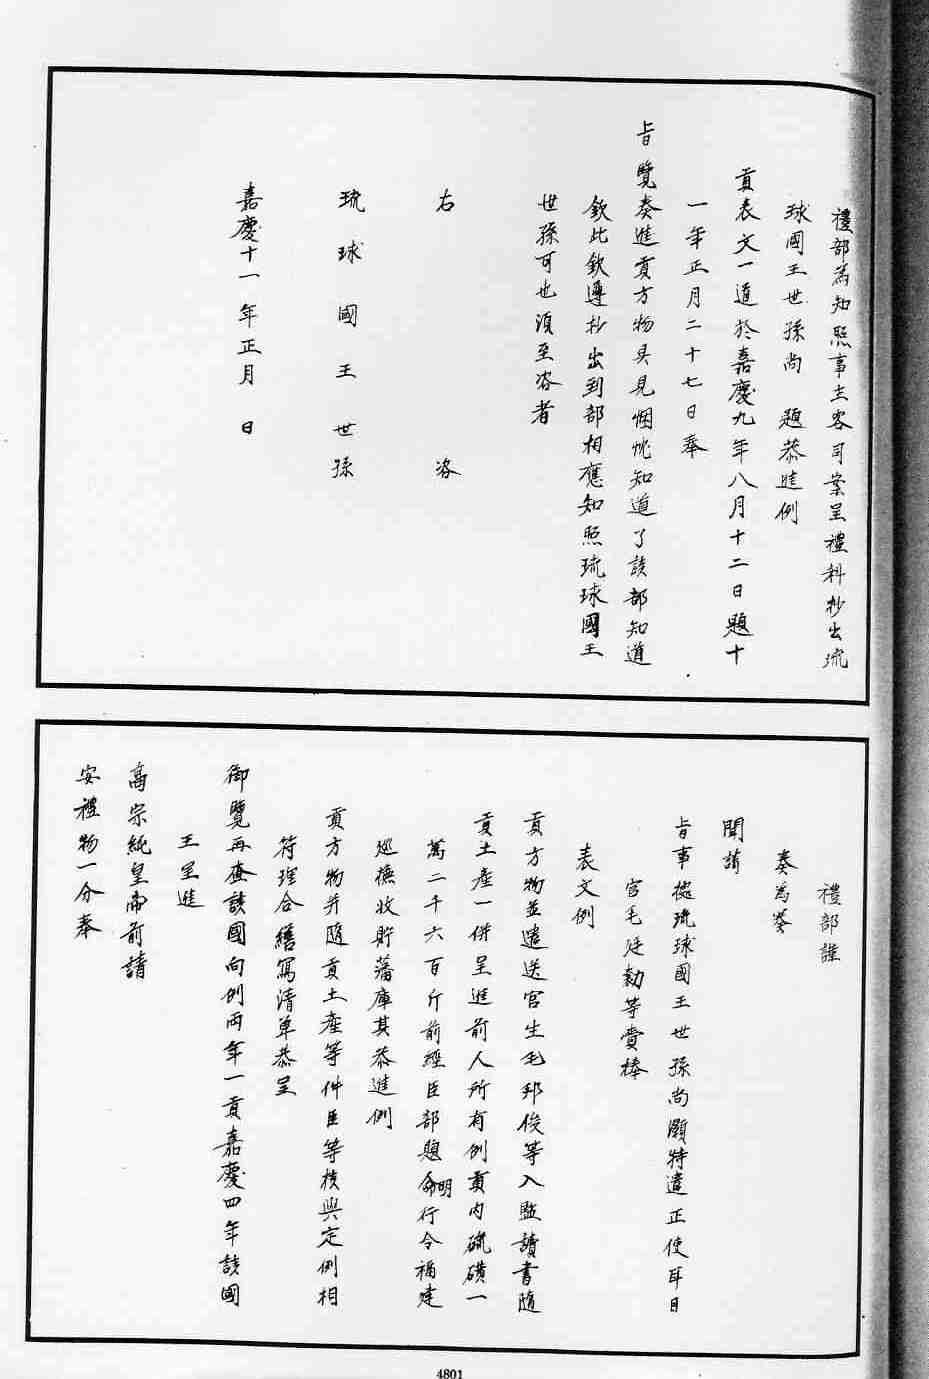 禮部為知照事主客司案呈禮科抄出琉
球國王世孫尚 題恭進例
貢表文一道於嘉慶九年八月十二日題十
一年正月二十七日奉
旨覽奏進貢方物具見悃忱知道了該部知道
欽此欽遵抄出到部相應知照琉球國王
世孫可也須至咨者
右 咨
琉球國王世孫
嘉慶十一年正月 日
禮部謹
奏為奏
聞請
旨事據琉球國王世孫尚灝特遣正使耳目
官毛廷勷等賫捧
表文例
貢方物並遣送官生毛邦俊等入監讀書隨
貢土產一併呈進前人所有例貢內硫磺一
萬二千六百斤前經臣部題明行令福建
巡撫收貯藩庫其恭進例
貢方物并隨貢土產等件臣等核與定例相
符理合繕寫清單恭呈
御覽再查該國向例兩年一貢嘉慶四年該國
王呈進
高宗純皇帝前請
安禮物一分奉
4801